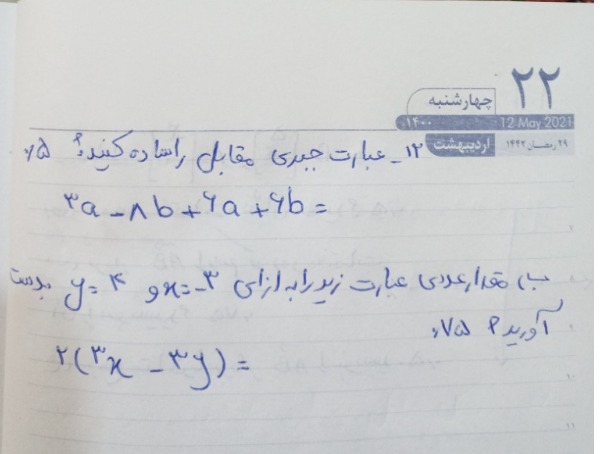 ۲۲
چهارشنبه
۱۴۰۰
12 May 2021
اردیبهشت
۲۹ رمضان ۱۴۴۲
۱۲_ عبارت جبری مقابل را ساده کنید؟ ۵٪
۳a - ۸b + ۶a + ۶b =
ب) مقدار عددی عبارت زیر را به ازای x=-۳ و y=۴ بدست
آورید؟ ۷۵٪
۲(۳x - ۳y) =
۱۰
۱۱